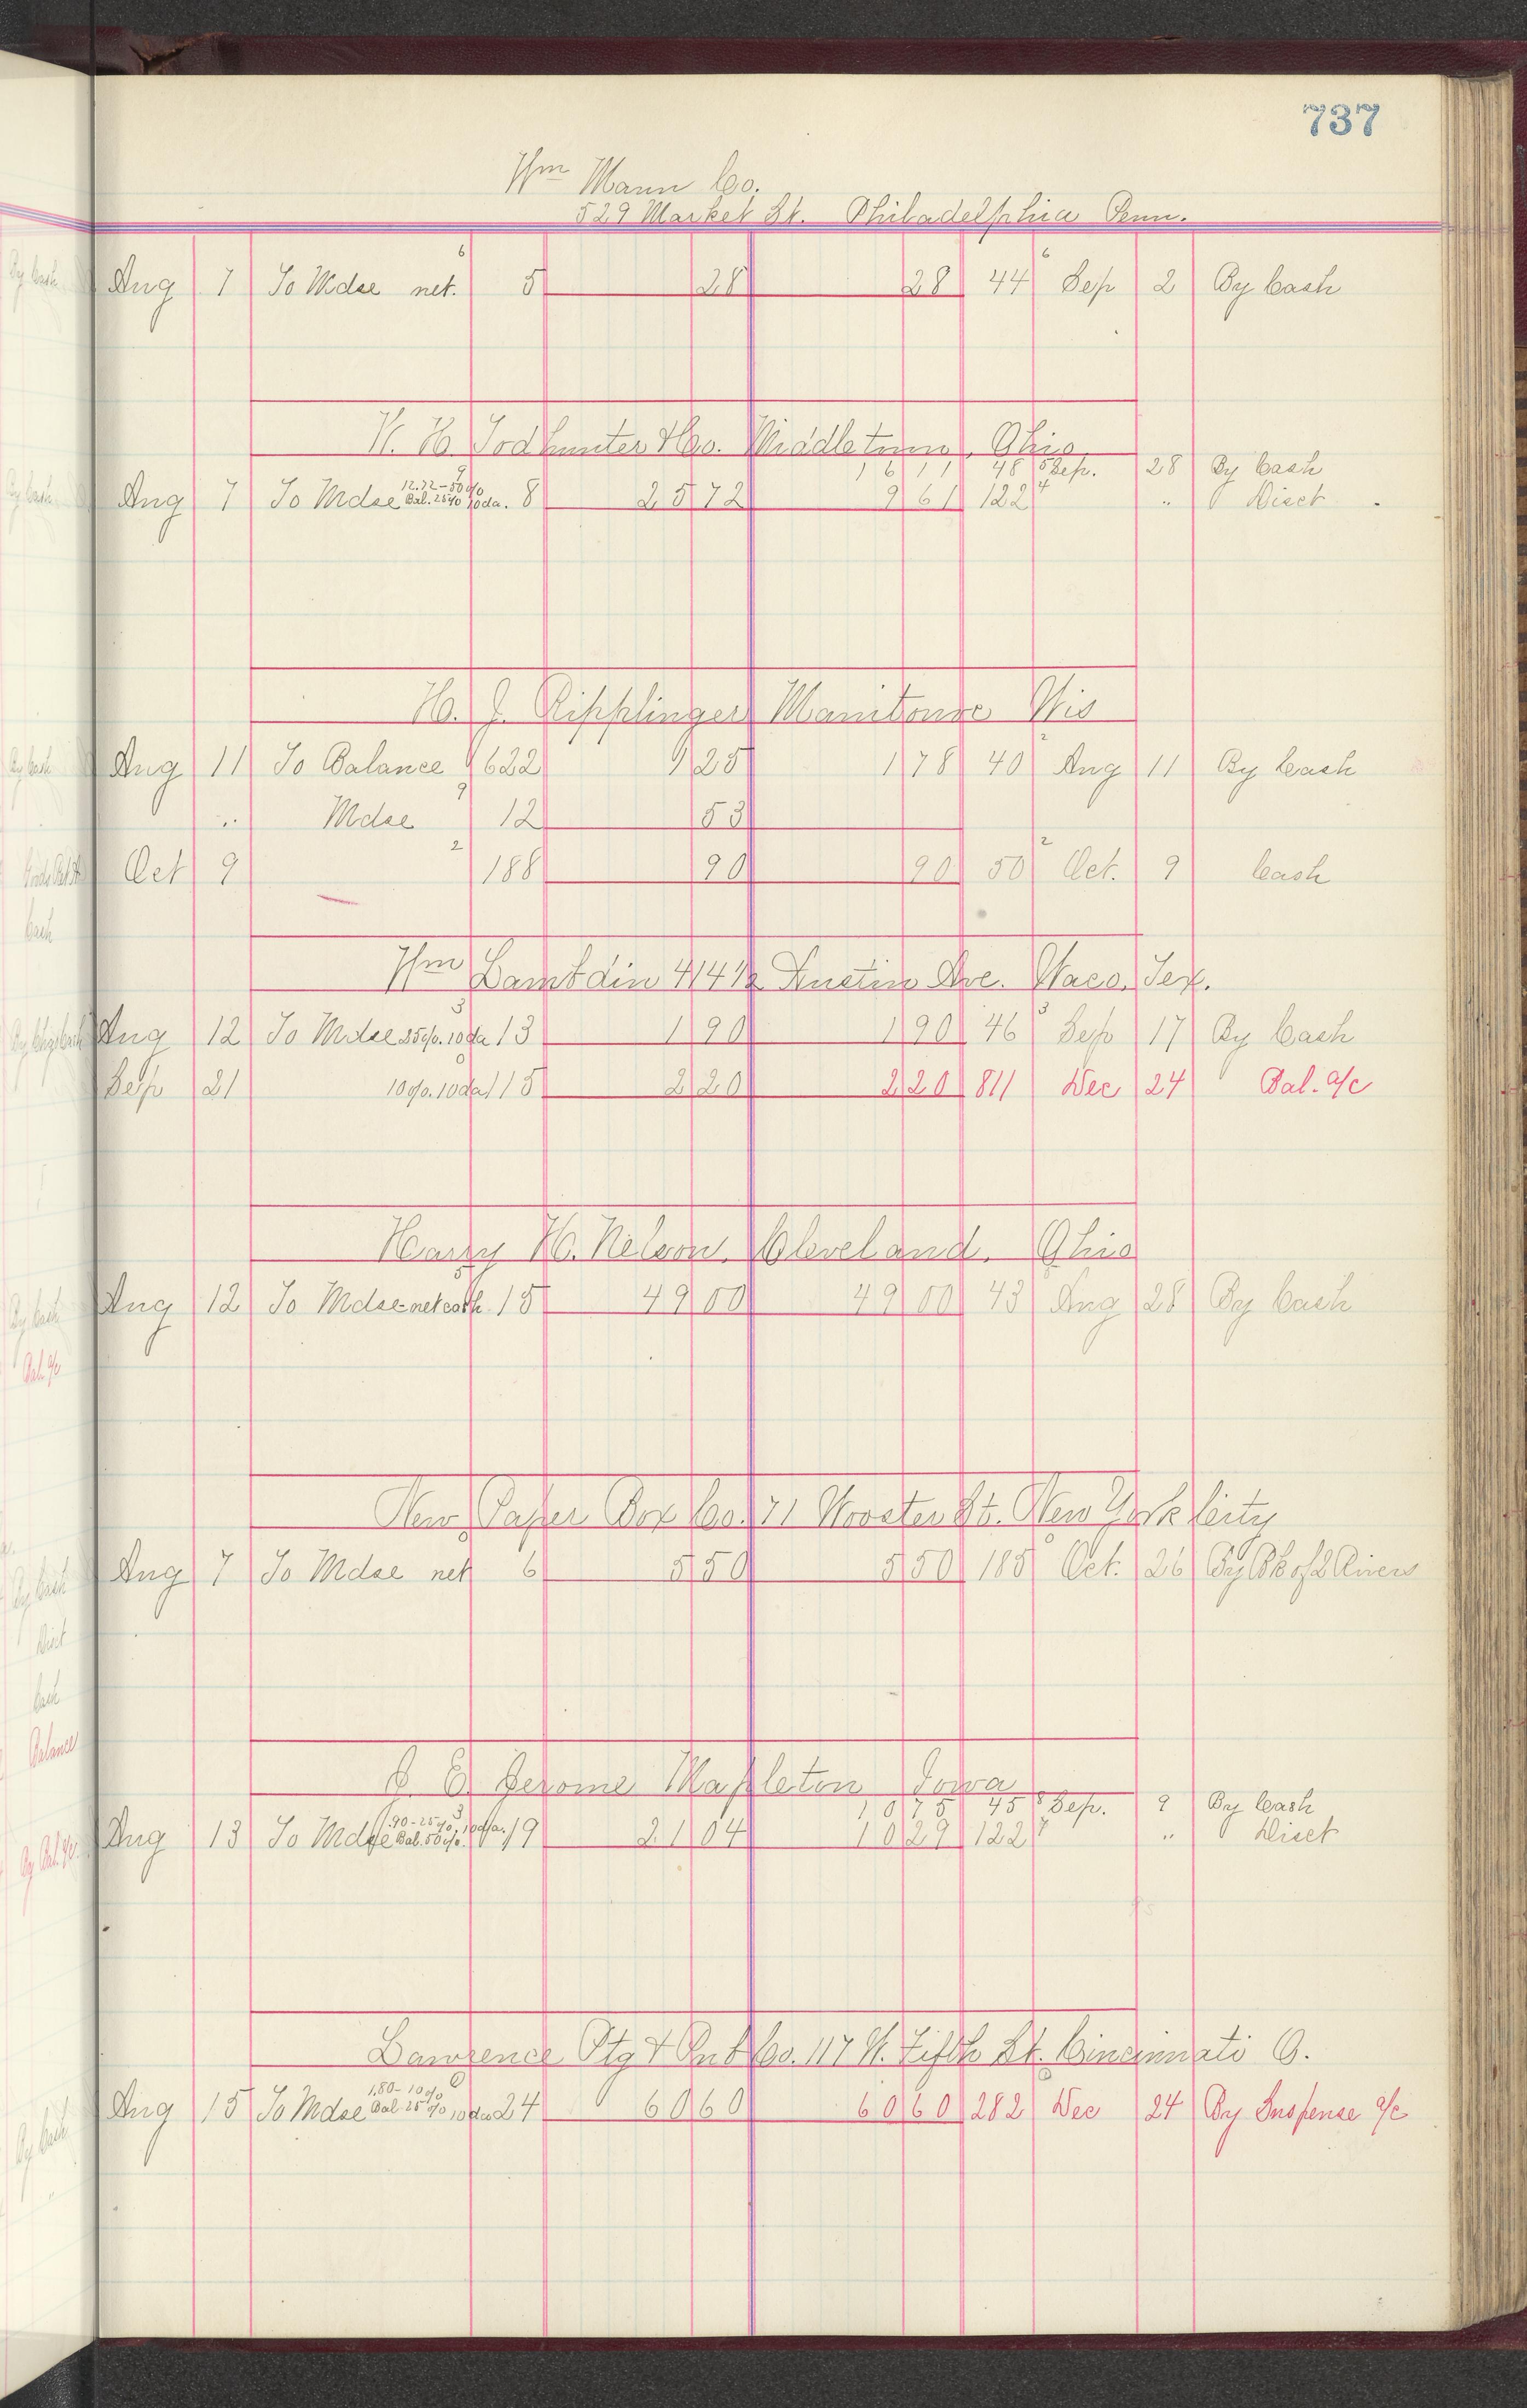 737
Wm Mann Co.
529 Market St. Philadelphia Penn.
Aug 7 To Mdse net. 6 5 28 28 44 6 Sep 2 By Cash
W. H. Todhunter & Co. Middletown, Ohio
16 11 48 5 Sep. 28 By Cash
Aug 7 To Mdse 12.72-50% Bal. 25% 10da. 9 8 25 72 9 61 122 4 " Disct
H. J. Ripplinger Manitowoc Wis
Aug 11 To Balance 9 622 1 25 1 78 40 2 Aug 11 By Cash
" Mdse 9 12 53
Oct 9 2 188 90 90 50 2 Oct. 9 Cash
Wm Lambdin 414½ Austin Ave. Waco, Tex.
Aug 12 To Mdse 25%. 10da 3 13 1 90 1 90 46 3 Sep 17 By Cash
Sep 21 10%. 10da 115 2 20 2 20 811 Dec 24 Bal. a/c
Harry H. Nelson, Cleveland, Ohio
Aug 12 To Mdse-net cash 15 49 00 49 00 43 Aug 28 By Cash
New Paper Box Co. 71 Wooster St. New York City
Aug 7 To Mdse net 6 5 50 5 50 185 Oct. 26 By Bk of 2 Rivers
J. E. Jerome Mapleton Iowa
10 75 45 8 Sep. 9 By Cash
Aug 13 To Mdse .90-25% 10da. Bal. 50%. 3 19 21 04 10 29 122 7 " Disct
Lawrence Ptg & Pub Co. 117 W. Fifth St. Cincinnati O.
Aug 15 To Mdse 1.80-10% Bal. 25% 10da 24 60 60 60 60 282 Dec 24 By Suspense a/c